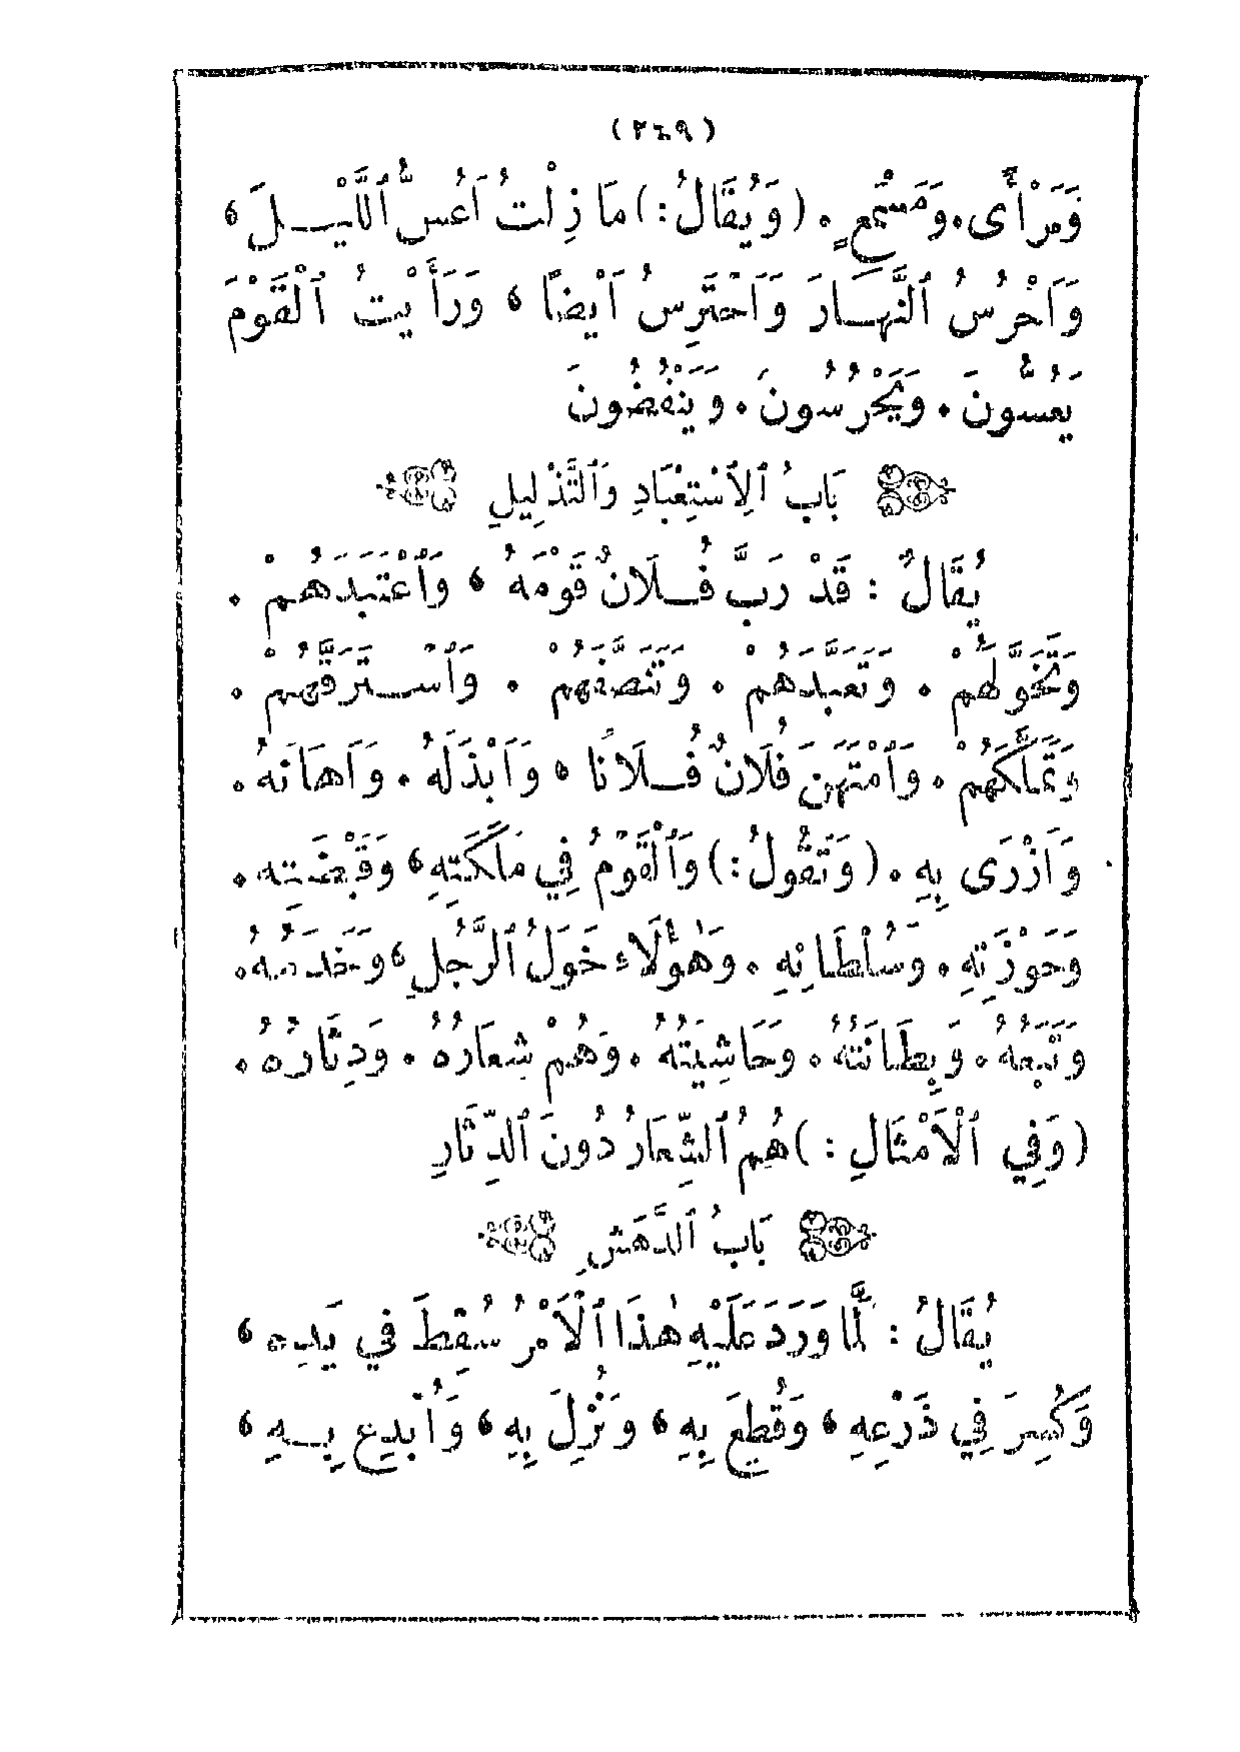 (٢٤٩)
وَمَرْأًى. وَمَسْمَعٍ. (وَيُقَالُ:) مَا زِلْتُ أَعُسُّ ٱللَّيْلَ،
وَأَحْرُسُ ٱلنَّهَارَ وَأَحْتَرِسُ أَيْضًا، وَرَأَيْتُ ٱلْقَوْمَ
يَعُسُّونَ. وَيَحْرُسُونَ. وَيَنْفُضُونَ
بَابُ ٱلِٱسْتِعْبَادِ وَٱلتَّذْلِيلِ
يُقَالُ: قَدْ رَبَّ فُلَانٌ قَوْمَهُ، وَٱعْتَبَدَهُمْ.
وَتَخَوَّلَهُمْ. وَتَعَبَّدَهُمْ. وَتَنَصَّفَهُمْ. وَٱسْتَرَقَّهُمْ.
وَتَمَلَّكَهُمْ. وَٱمْتَهَنَ فُلَانٌ فُلَانًا، وَأَبْذَلَهُ. وَأَهَانَهُ.
وَأَزْرَى بِهِ. (وَتَقُولُ:) وَٱلْقَوْمُ فِي مَلَكَتِهِ، وَقَبْضَتِهِ.
وَحَوْزَتِهِ. وَسُلْطَانِهِ. وَهٰؤُلَاءِ خَوَلُ ٱلرَّجُلِ، وَخَدَمُهُ.
وَتَبَعُهُ. وَبِطَانَتُهُ. وَحَاشِيَتُهُ. وَهُمْ شِعَارُهُ. وَدِثَارُهُ.
(وَفِي ٱلْأَمْثَالِ:) هُمُ ٱلشِّعَارُ دُونَ ٱلدِّثَارِ
بَابُ ٱلدَّهَشِ
يُقَالُ: لَمَّا وَرَدَ عَلَيْهِ هٰذَا ٱلْأَمْرُ سُقِطَ فِي يَدِهِ،
وَكُسِرَ فِي ذَرْعِهِ، وَقُطِعَ بِهِ، وَنُزِلَ بِهِ، وَأُبْدِعَ بِهِ،